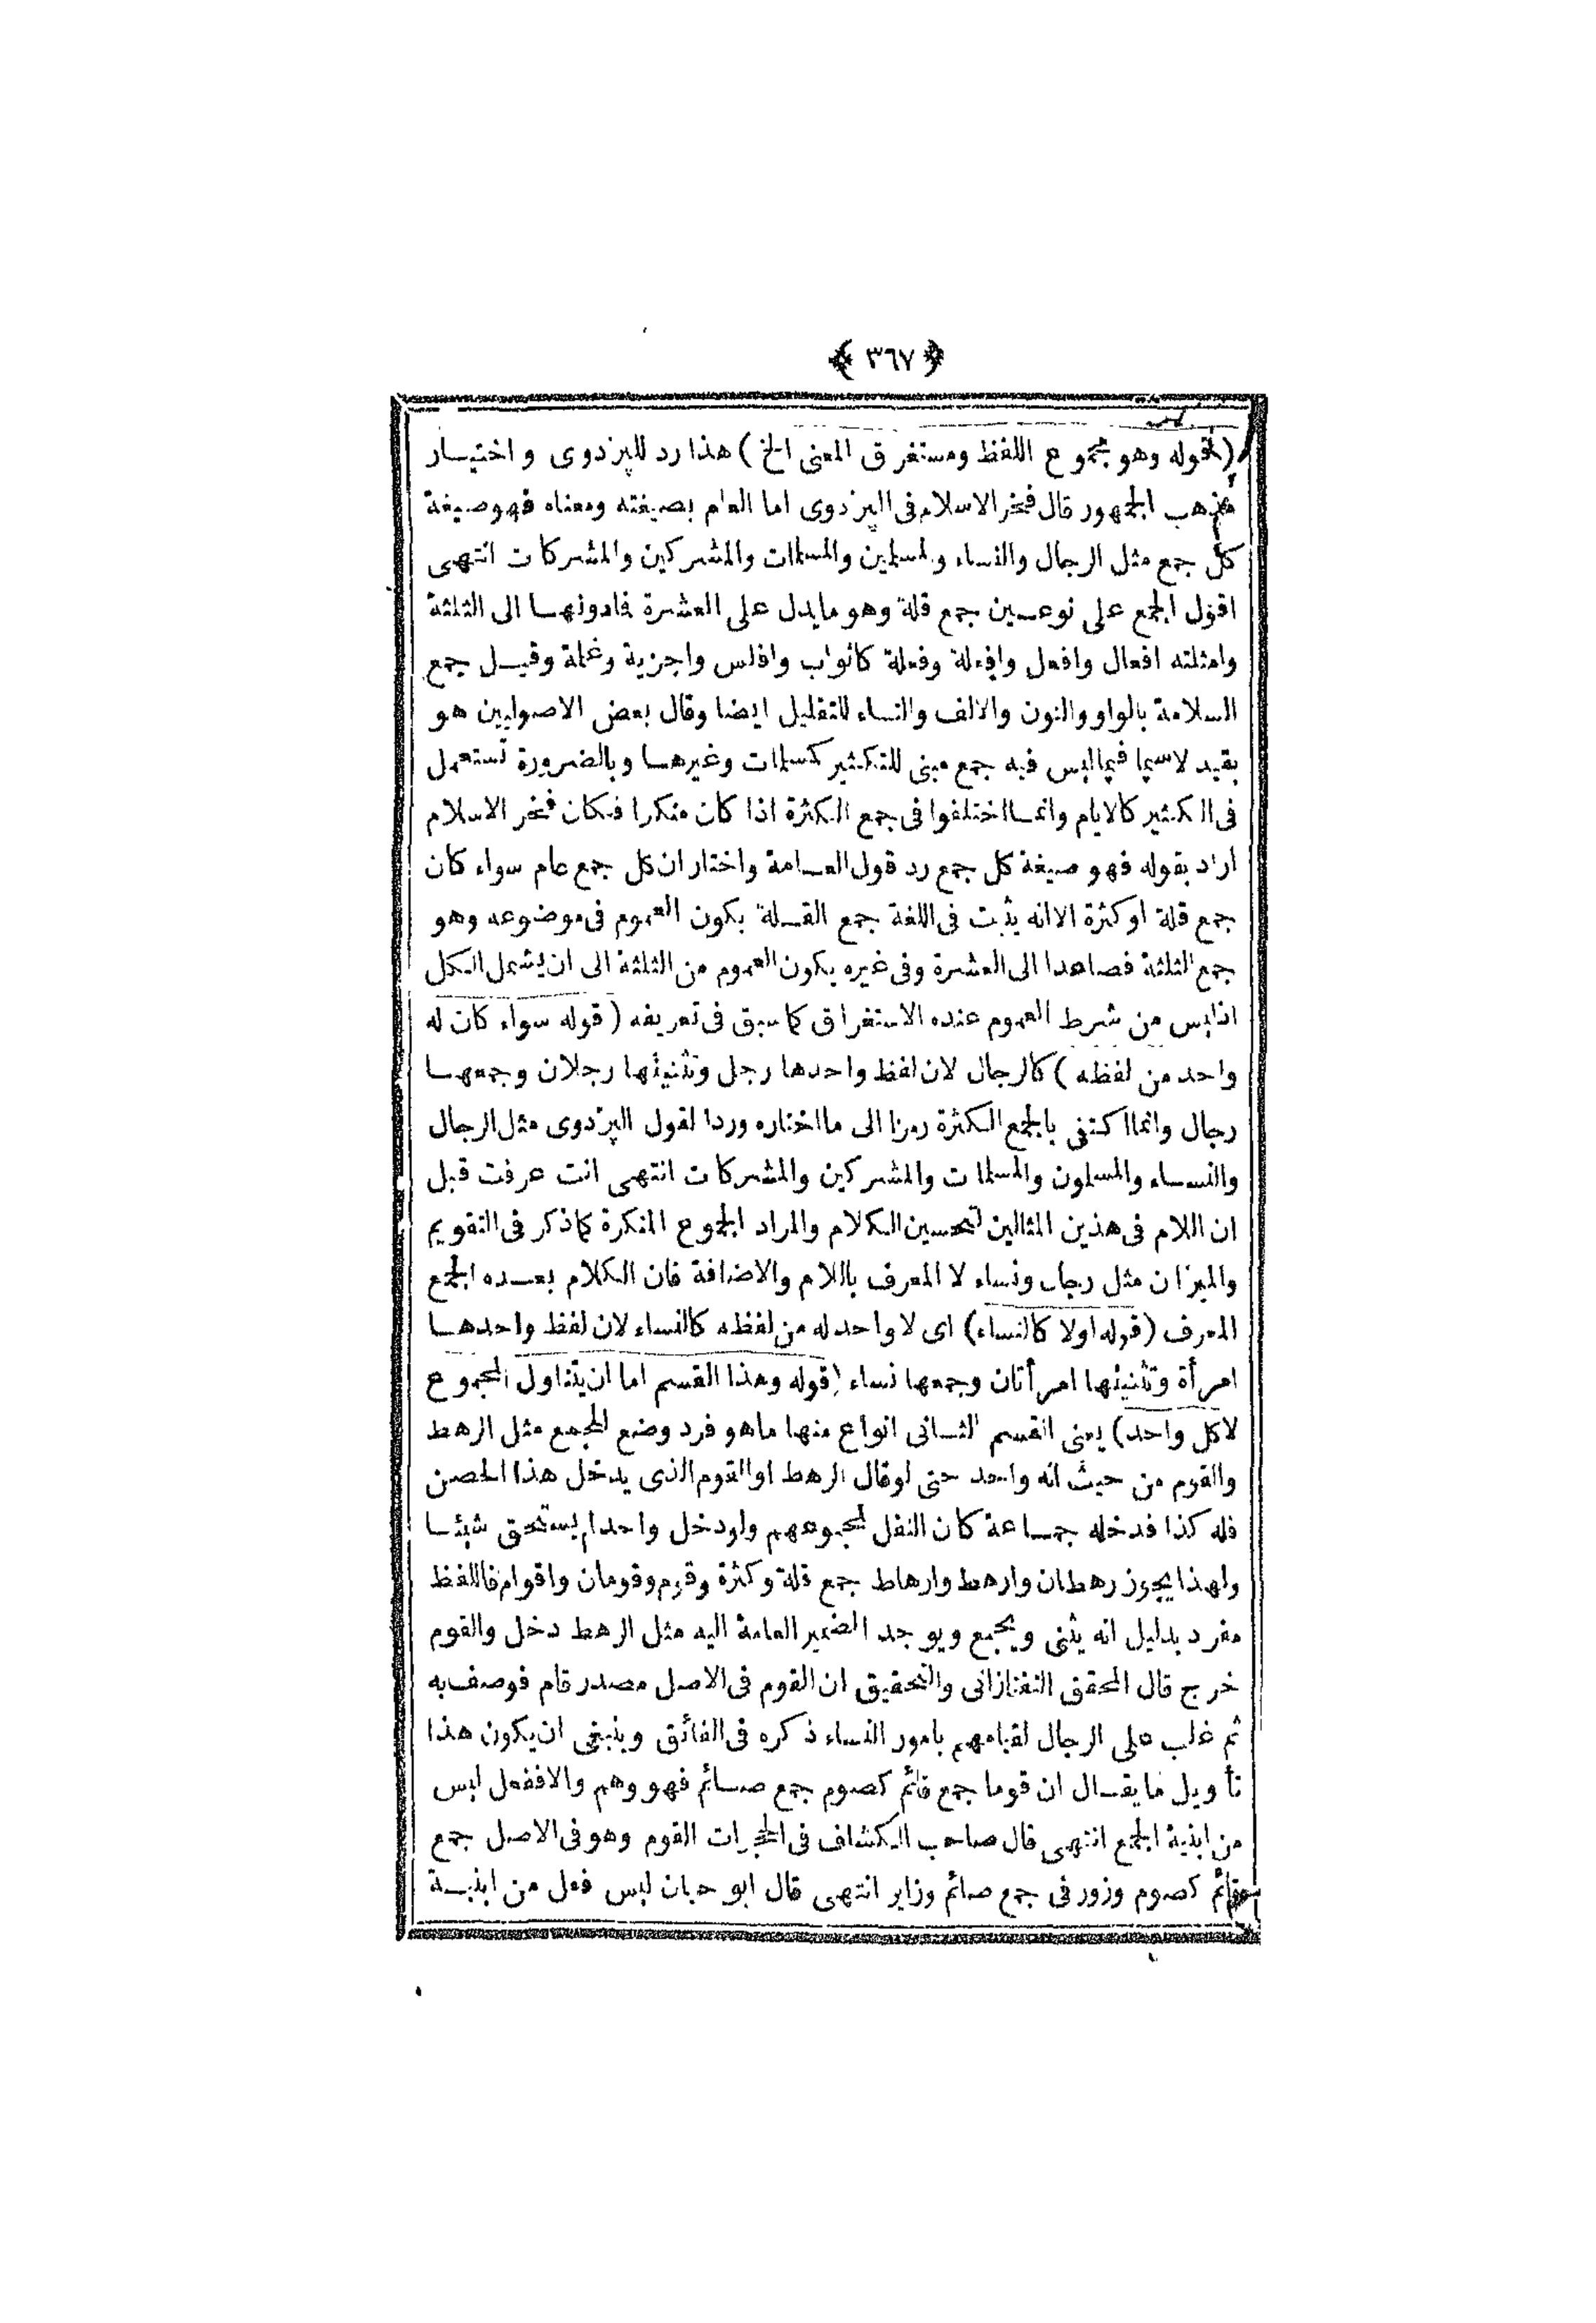 ﴿ ٣٦٧ ﴾
(قوله وهو مجموع اللفظ ومستغرق المعنى الخ) هذا رد للبزدوى واختيار
مذهب الجمهور قال فخر الاسلام فى البزدوى اما العام بصيغته ومعناه فهو صيغة
كل جمع مثل الرجال والنساء ولمسلمين والمسلمات والمشركين والمشركات انتهى
اقول الجمع على نوعين جمع قلة وهو مايدل على العشرة فادونها الى الثلثة
وامثلته افعال وافعل وافعلة وفعلة كاثواب وافلس واجزية وغلمة وقيل جمع
السلامة بالواو والنون والالف والتاء للتقليل ايضا وقال بعض الاصوليين هو
بقيد لاسيما فيماليس فيه جمع مبنى للتكثير كمسلمات وغيرها وبالضرورة تستعمل
فى الكثير كالايام وانما اختلفوا فى جمع الكثرة اذا كان منكرا فكان فخر الاسلام
اراد بقوله فهو صيغة كل جمع رد قول العامة واختار ان كل جمع عام سواء كان
جمع قلة او كثرة الاانه يثبت فى اللغة جمع القلة يكون العموم فى موضوعه وهو
جمع الثلثة فصاعدا الى العشرة وفى غيره يكون العموم من الثلثة الى ان يشمل الكل
اذليس من شرط العموم عنده الاستغراق كما سبق فى تعريفه (قوله سواء كان له
واحد من لفظه) كالرجال لان لفظ واحدها رجل وتثنيتها رجلان وجمعها
رجال وانما اكتفى بالجمع الكثرة رمزا الى ما اختاره وردا لقول البزدوى مثل الرجال
والنساء والمسلمون والمسلمات والمشركين والمشركات انتهى انت عرفت قبل
ان اللام فى هذين المثالين لتحسين الكلام والمراد الجموع المنكرة كماذكر فى التقويم
والميزان مثل رجال ونساء لا المعرف باللام والاضافة فان الكلام بعده الجمع
المعرف (قوله اولا كالنساء) اى لا واحد له من لفظه كالنساء لان لفظ واحدها
امرأة وتثنيتها امرأتان وجمعها نساء (قوله وهذا القسم اما ان يتناول المجموع
لاكل واحد) يعنى القسم الثانى انواع منها ماهو فرد وضع للجمع مثل الرهط
والقوم من حيث انه واحد حتى لوقال الرهط او القوم الذى يدخل هذا الحصن
فله كذا فدخله جماعة كان النفل لمجموعهم ولودخل واحد لم يستحق شيئا
ولهذا يجوز رهطان وارهط وارهاط جمع قلة وكثرة وقوم وقومان واقوام فاللفظ
مفرد بدليل انه يثنى ويجمع ويوحد الضمير العامة اليه مثل الرهط دخل والقوم
خرج قال المحقق التفتازانى والتحقيق ان القوم فى الاصل مصدر قام فوصف به
ثم غلب على الرجال لقيامهم بامور النساء ذكره فى الفائق وينبغى ان يكون هذا
تأويل مايقال ان قوما جمع قائم كصوم جمع صائم فهو وهم والاففعل ليس
من ابنية الجمع انتهى قال صاحب الكشاف فى الحجرات القوم وهو فى الاصل جمع
قائم كصوم وزور فى جمع صائم وزاير انتهى قال ابو حيان ليس فعل من ابنية